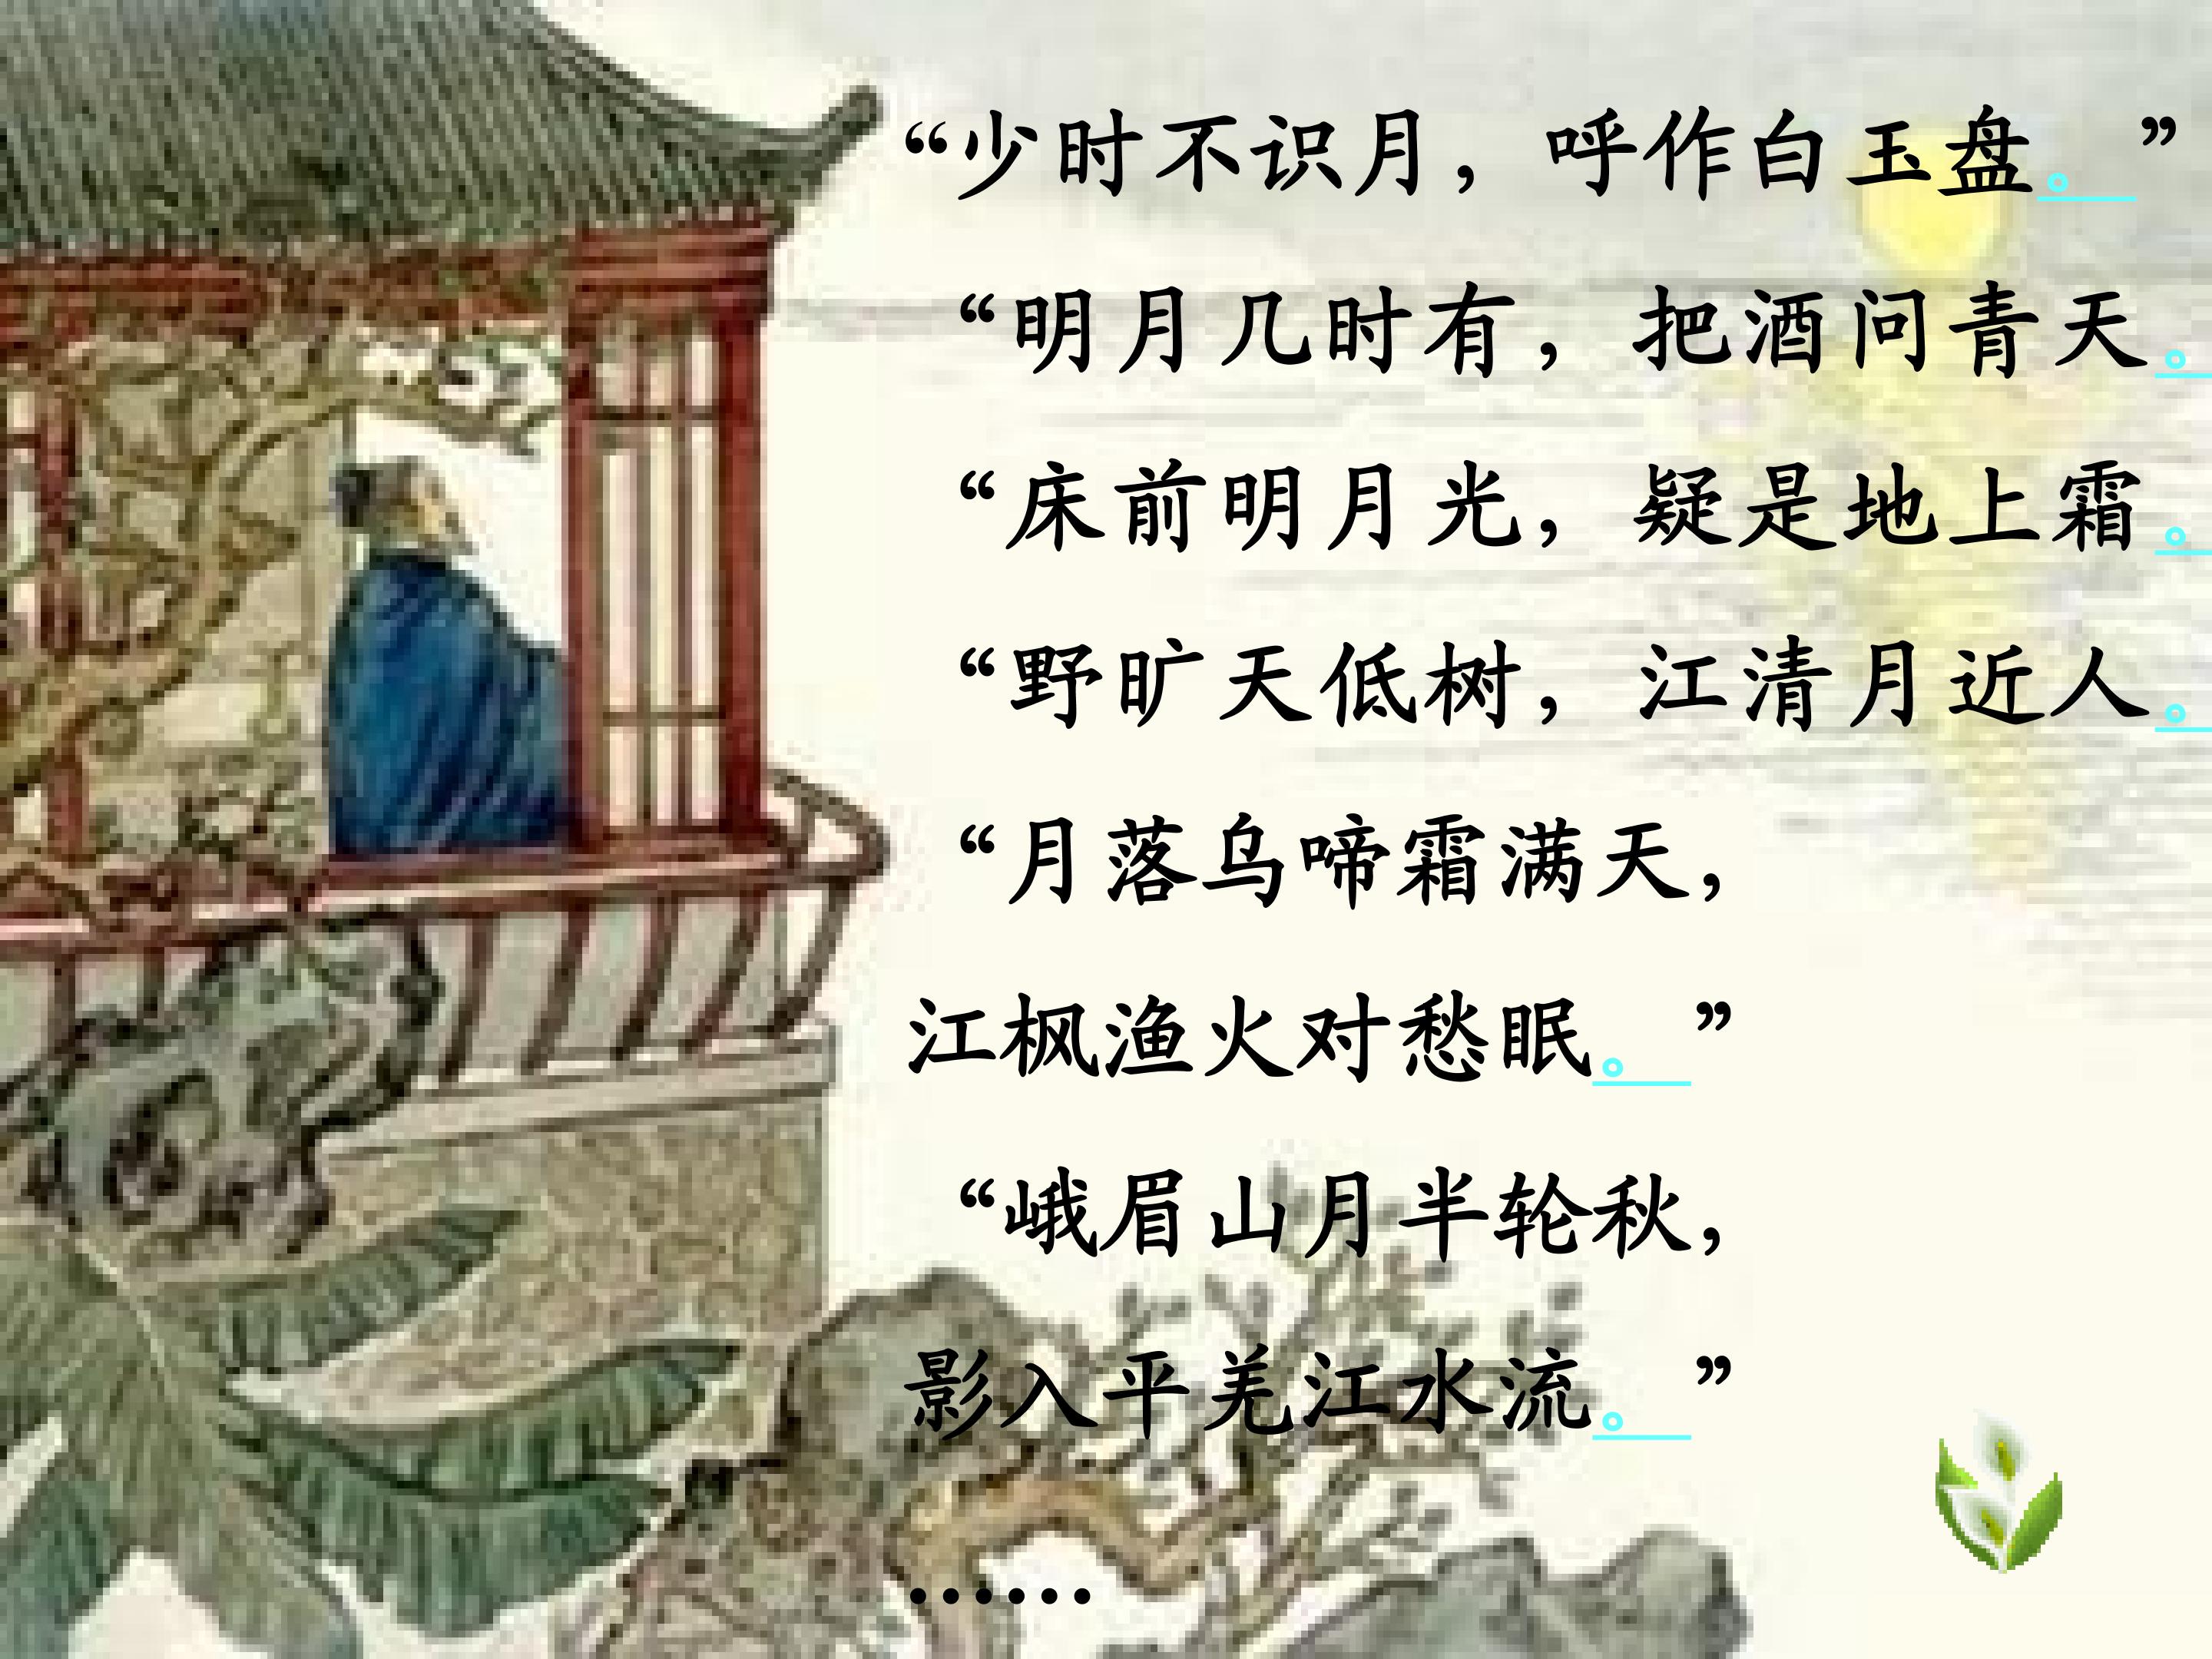 “少时不识月，呼作白玉盘。”
“明月几时有，把酒问青天。
“床前明月光，疑是地上霜。
“野旷天低树，江清月近人。
“月落乌啼霜满天，
江枫渔火对愁眠。”
“峨眉山月半轮秋，
影入平羌江水流。”
……